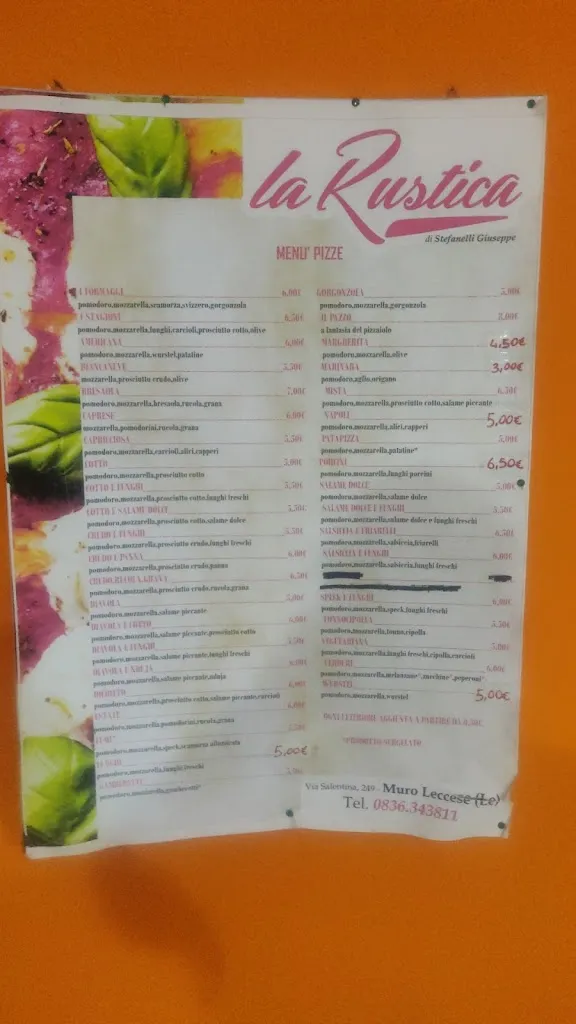 la Rustica
di Stefanelli Giuseppe
MENU' PIZZE
4 FORMAGGI 6,00€
pomodoro,mozzarella,scamorza,svizzero,gorgonzola
4 STAGIONI 6,50€
pomodoro,mozzarella,funghi,carciofi,prosciutto cotto,olive
AMERICANA 6,00€
pomodoro,mozzarella,wurstel,patatine
BIANCANEVE 5,50€
mozzarella,prosciutto crudo,olive
BRESAOLA 7,00€
pomodoro,mozzarella,bresaola,rucola,grana
CAPRESE 6,00€
mozzarella,pomodorini,rucola,grana
CAPRICCIOSA 5,50€
pomodoro,mozzarella,carciofi,alici,capperi
COTTO 5,00€
pomodoro,mozzarella,prosciutto cotto
COTTO E FUNGHI 5,50€
pomodoro,mozzarella,prosciutto cotto,funghi freschi
COTTO E SALAME DOLCE 5,50€
pomodoro,mozzarella,prosciutto cotto,salame dolce
CRUDO E FUNGHI 5,50€
pomodoro,mozzarella,prosciutto crudo,funghi freschi
CRUDO E PANNA 6,00€
pomodoro,mozzarella,prosciutto crudo,panna
CRUDO,RUCOLA,GRANA 6,50€
pomodoro,mozzarella,prosciutto crudo,rucola,grana
DIAVOLA 5,00€
pomodoro,mozzarella,salame piccante
DIAVOLA E COTTO 6,00€
pomodoro,mozzarella,salame piccante,prosciutto cotto
DIAVOLA E FUNGHI 5,50€
pomodoro,mozzarella,salame piccante,funghi freschi
DIAVOLA E NDUJA 6,00€
pomodoro,mozzarella,salame piccante,nduja
pomodoro,mozzarella,prosciutto cotto,salame piccante,carciofi
ESTATE 6,00€
pomodoro,mozzarella,pomodorini,rucola,grana
pomodoro,mozzarella,speck,scamorza affumicata
FUNGHI 5,00€
pomodoro,mozzarella,funghi freschi
GAMBERETTI
pomodoro,mozzarella,gamberetti*
GORGONZOLA 5,00€
pomodoro,mozzarella,gorgonzola
IL PAZZO 8,00€
a fantasia del pizzaiolo
MARGHERITA 4,50€
pomodoro,mozzarella,olive
MARINARA 3,00€
pomodoro,aglio,origano
MISTA 6,50€
pomodoro,mozzarella,prosciutto cotto,salame piccante
NAPOLI 5,00€
pomodoro,mozzarella,alici,capperi
PATAPIZZA 5,00€
pomodoro,mozzarella,patatine*
PORCINI 6,50€
pomodoro,mozzarella,funghi porcini
SALAME DOLCE 5,00€
pomodoro,mozzarella,salame dolce
SALAME DOLCE E FUNGHI 5,50€
pomodoro,mozzarella,salame dolce e funghi freschi
SALSICCIA E FRIARELLI 6,50€
pomodoro,mozzarella,salsiccia,friarelli
SALSICCIA E FUNGHI 6,00€
pomodoro,mozzarella,salsiccia,funghi freschi
SPECK E FUNGHI 6,00€
pomodoro,mozzarella,speck,funghi freschi
TONNO,CIPOLLA 5,50€
pomodoro,mozzarella,tonno,cipolla
VEGETARIANA 5,00€
pomodoro,mozzarella,funghi freschi,cipolla,carciofi
VERDURE 6,00€
pomodoro,mozzarella,melanzane*,zucchine*,peperoni*
WURSTEL 5,00€
pomodoro,mozzarella,wurstel
OGNI ULTERIORE AGGIUNTA A PARTIRE DA 0,50€
*PRODOTTO SURGELATO
Via Salentina, 249 - Muro Leccese (Le)
Tel. 0836.343811